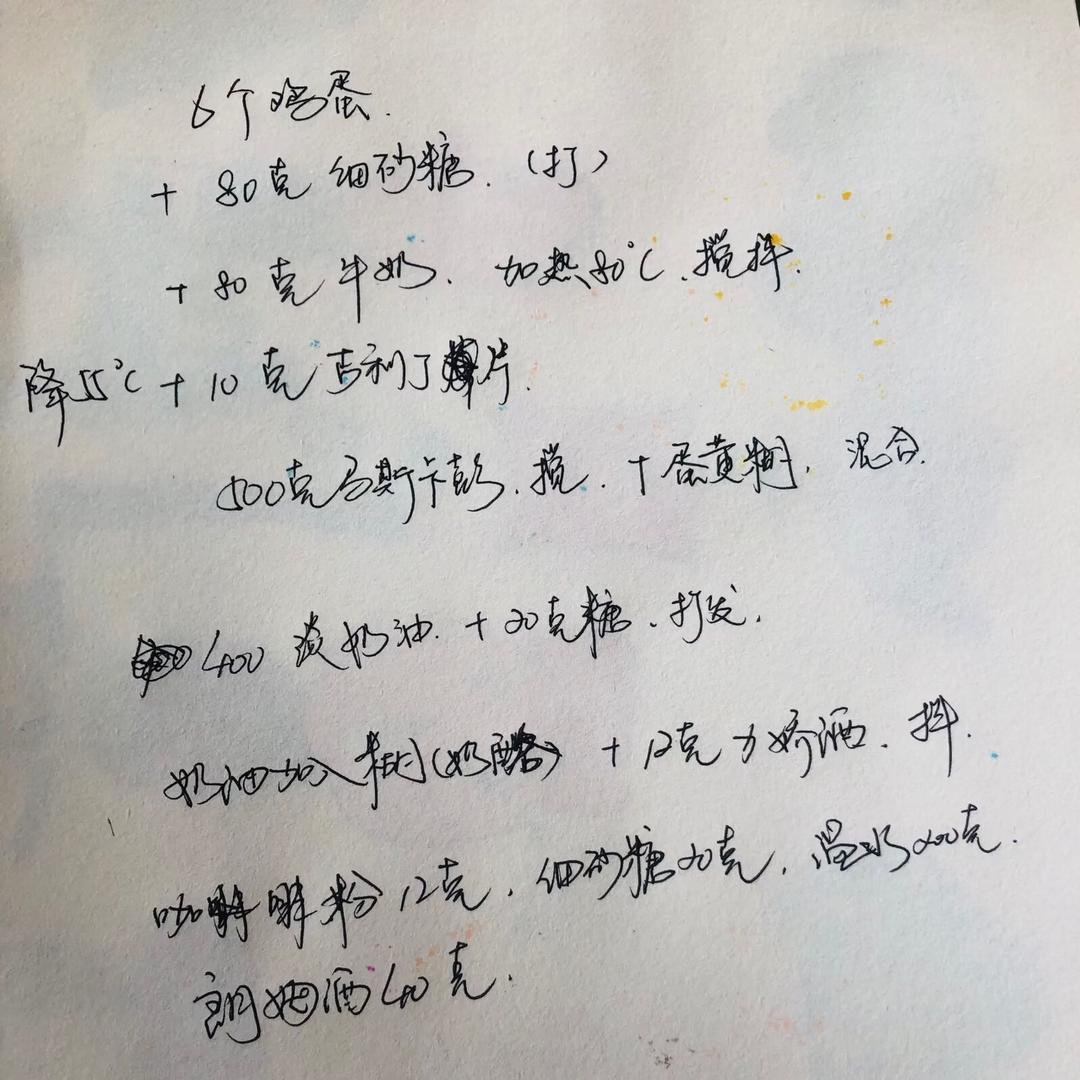 6个鸡蛋.
+ 80克 细砂糖. (打)
+ 80克 牛奶. 加热80℃. 搅拌.
降55℃ + 10克 吉利丁片.
500克马斯卡彭. 搅. + 蛋黄糊. 混合.
400 淡奶油. + 20克糖. 打发.
奶油加入糊(奶酪) + 12克力娇酒. 拌.
咖啡粉12克. 细砂糖20克. 温水200克.
朗姆酒40克.